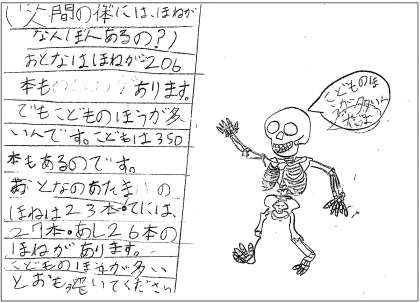 人間の体には、ほねが
なんぼんあるの?)
おとなはほねが206
本も あります。
でもこどものほうが多
いんです。こどもは350
本もあるのです。
おとなのあたま の
ほねは23本・てには、
27本・あし26本の
ほねがあります。
こどものほうが多い
とおもっ ていてください
こどものほ
うが多いん
だよ